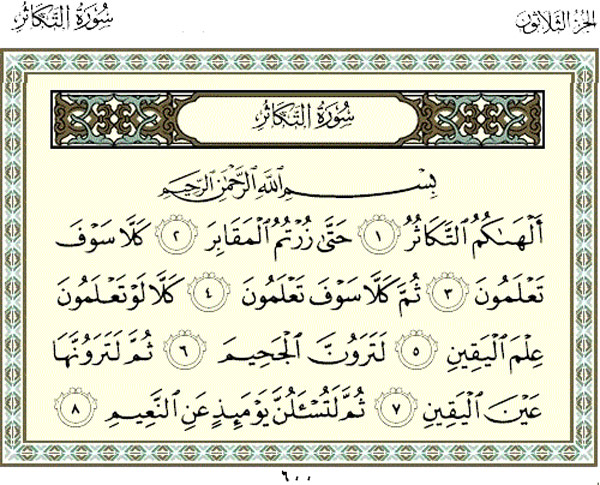 الجزء الثلاثون
سورة التكاثر
سُورَةُ التَّكَاثُرِ
بِسْمِ اللَّهِ الرَّحْمَٰنِ الرَّحِيمِ
أَلْهَىٰكُمُ التَّكَاثُرُ ١ حَتَّىٰ زُرْتُمُ الْمَقَابِرَ ٢ كَلَّا سَوْفَ
تَعْلَمُونَ ٣ ثُمَّ كَلَّا سَوْفَ تَعْلَمُونَ ٤ كَلَّا لَوْ تَعْلَمُونَ
عِلْمَ الْيَقِينِ ٥ لَتَرَوُنَّ الْجَحِيمَ ٦ ثُمَّ لَتَرَوُنَّهَا
عَيْنَ الْيَقِينِ ٧ ثُمَّ لَتُسْـَٔلُنَّ يَوْمَئِذٍ عَنِ النَّعِيمِ ٨
٦٠٠